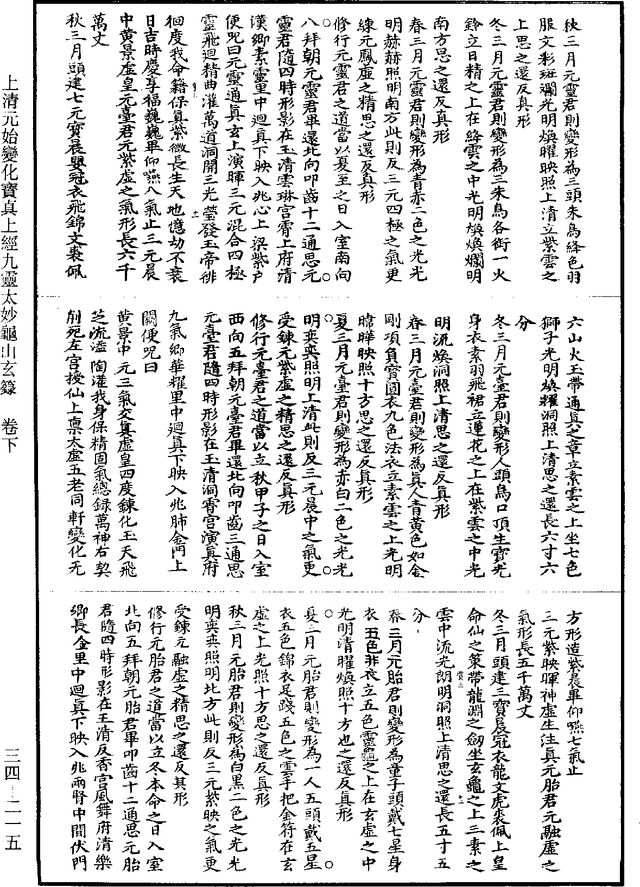 秋三月元靈君則變形為三頭朱鳥絳色羽
服文彩斑斕光明煥曜映照上清立紫雲之
上思之還反真形
冬三月元靈君則變形為三朱鳥各銜一火
鈴立日精之上在絳雲之中光明煥煥爛明
南方思之還反真形
春三月元靈君則變形為青赤二色之光光
明赫赫照明南方此則反三元四極之氣更
練元鳳虛之精思之還反真形
修行元靈君之道當以夏至之日入室南向
八拜朝元靈君畢還北向叩齒十二通思元
靈君隨四時形影在玉清雲琳宮霄上府清
漢鄉素靈里中迴真下映入兆心上梁紫戶
便呪曰元靈通真玄上演暉三元混合四極
靈飛迴精曲灌萬道洞開三光瑩發玉帝徘
徊度我命籍保真紫微長生天地億劫不衰
日吉時慶享福巍巍畢仰嚥八氣止三元晨
中黃景虛皇元臺君元紫虛之氣形長六千
萬丈
秋三月頭建七元寶晨嬰冠衣飛錦文裘佩
六山火玉帶通真之章立素雲之上坐七色
獅子光明煥耀洞照上清思之還長六寸六
分
冬三月元臺君則變形人頭鳥口頂生寶光
身衣素羽飛裙立蓮花之上在紫雲之中光
明流煥洞照上清思之還反真形
春三月元臺君則變形為真人青黃色如金
剛項負寶圓衣九色法衣立素雲之上光明
暐曄映照十方思之還反真形
夏三月元臺君則變形為赤白二色之光光
明奕奕照明上清此則反三元晨中之氣更
受鍊元紫虛之精思之還反真形
修行元臺君之道當以立秋甲子之日入室
西向五拜朝元臺君畢還北向叩齒三通思
元臺君隨四時形影在玉清洞霄宮演真府
九氣鄉華耀里中迴真下映入兆肺金門上
關便呪曰
黃景中元三氣交真虛皇四度鍊化玉天飛
芝流溢陶灌我身保精固氣總錄萬神右契
削死左宮授仙上稟太虛五老同軒變化无
方形造紫晨畢仰嚥七氣止
三元紫映暉神虛生注真元胎君元融虛之
氣形長五千萬丈
冬三月頭建三寶晨冠衣龍文虎裘佩上皇
命仙之策帶龍淵之劒坐玄龜之上三素之
雲中流光朗明洞照上清思之還長五寸五
分
春三月元胎君則變形為童子頭戴七星身
衣五色非衣立五色靈龜之上在玄虛之中
光明清曜煥照十方也之還反真形
夏三月元胎君則變形為一人五頭戴五星
衣五色錦衣足踐五色之雲手把金符在玄
虛之上光照十方思之還反真形
秋三月元胎君則變形為白黑二色之光光
明奕奕照明北方此則反三元紫映之氣更
受鍊元融虛之精思之還反其形
修行元胎君之道當以立冬本命之日入室
北向五拜朝元胎君畢叩齒十二通思元胎
君隨四時形影在玉清反香宮風舞府清樂
鄉長金里中迴真下映入兆兩腎中間伏門
上清元始變化寶真上經九靈太妙龜山玄籙 卷下
三四–二一五